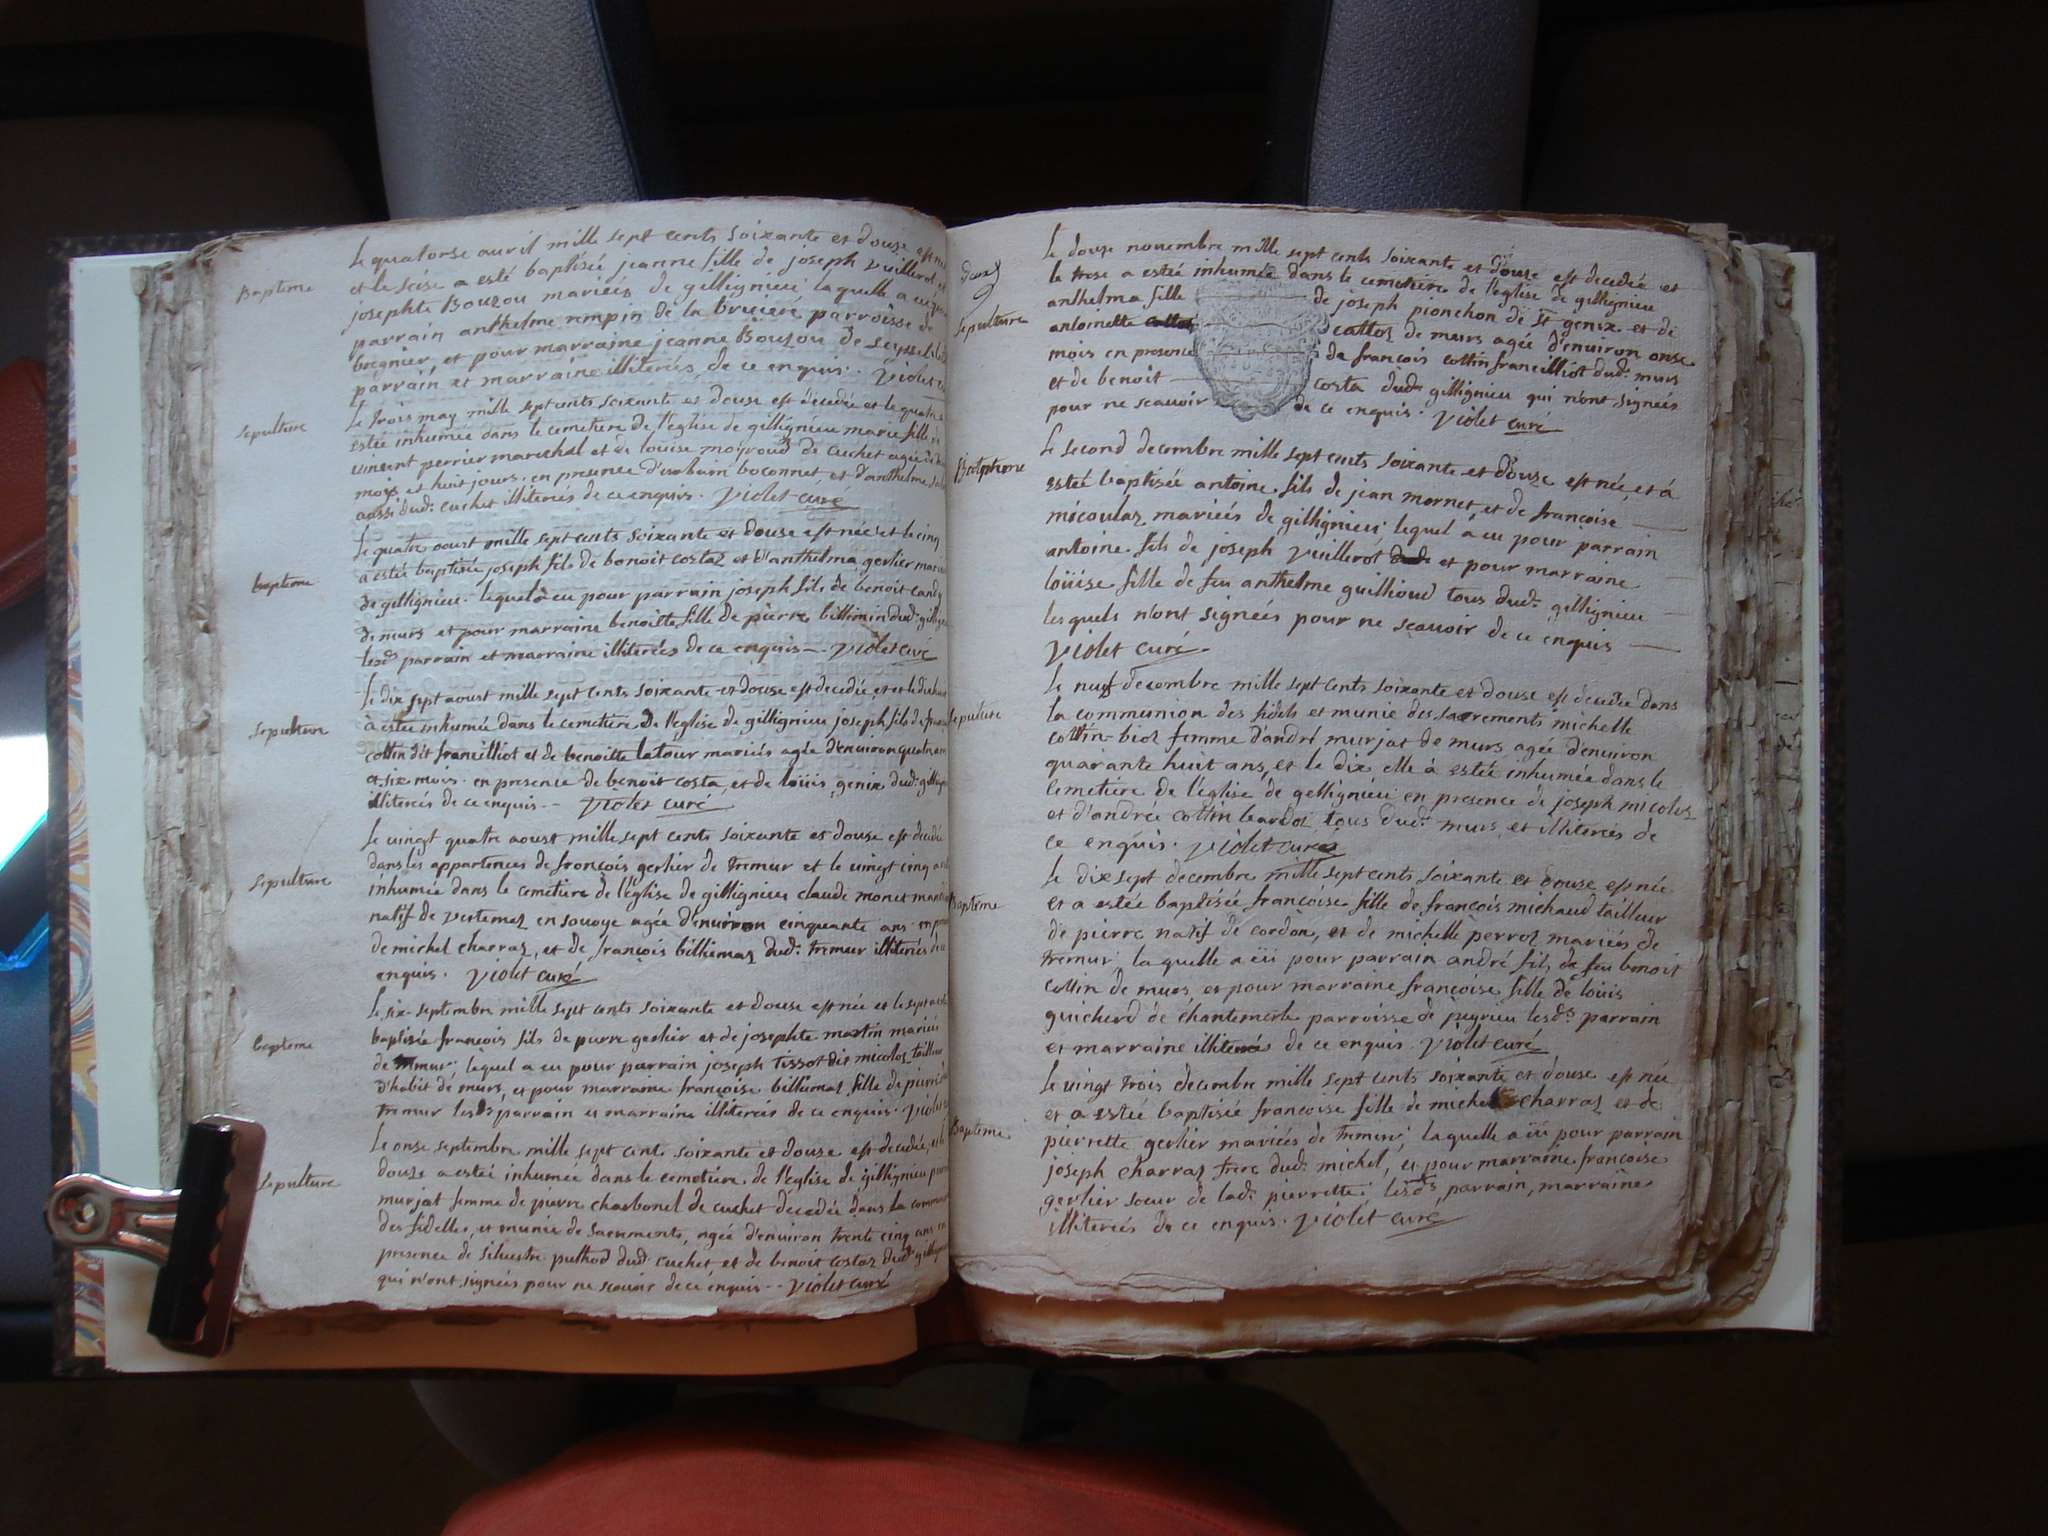 Bapteme
Le quatorse auril mille sept cents soixante et douse est née
et le seise a esté baptisée jeanne fille de joseph vuillerot et
josephte Bouzou mariés de gillignieu laquelle a eu pour
parrain anthelme rempin de la parroisse de
bregnier, et pour marraine jeanne Bouzou de
parrain et marraine illiterés de ce enquis. violet
sepulture
Le trois may mille sept cents soixante et douse est decedée et le quatre
estée inhumée dans le cemetiere de l'eglise de gillignieu marie fille
vincent perrier marechal et de louise moiroud de cuchet agée de
mois et huit jours. en presence d'urbain boconnet, et d'anthelme
aussi dud. cuchet illiterés de ce enquis. violet curé
bapteme
Le quatre aoust mille sept cents soixante et douse est née et le cinq
a estée baptisé joseph fils de benoit costaz et d'anthelma gerlier mariés
de gillignieu. lequel à eu pour parrain joseph fils de benoit candy
de murs et pour marraine benoitte fille de pierre billimin dud. gillignieu
lesds parrain et marraine illiterés de ce enquis -. violet curé
sepulture
Le dix sept aoust mille sept cents soixante et douse est decedée et le dixhuit
à estée inhumée dans le cemetiere de l'eglise de gillignieu joseph fils de
cottin dit francilliot et de benoitte latour mariés agée d'environ quatre ans
et six mois. en presence de benoit costa, et de loüis genix dud. gillignieu
illiterés de ce enquis -- violet curé
sepulture
Le vingt quatre aoust mille sept cents soixante et douse est decedé
dans les appartences de françois gerlier de tremur et le vingt cinq a esté
inhumée dans le cemetiere de l'eglise de gillignieu claude monet
natif de vertemez en savoye agée d'environ cinquante ans. en presence
de michel charraz, et de françois billiemaz dud. tremur illiterés de ce
enquis. violet curé
bapteme
Le six septembre mille sept cents soixante et douse est née et le sept a esté
baptisée françois fils de pierre gerlier et de josephte martin mariés
de tremur, lequel a eu pour parrain joseph tissot dit micoloz tailleur
d'habit de murs, et pour marraine françoise billiemaz fille de pierre de
tremur lesds parrain et marraine illiterés de ce enquis. violet
sepulture
Le onse septembre mille sept cents soixante et douse est decedée, et le
douse a estée inhumée dans le cemetiere de l'eglise de gillignieu
murjat femme de pierre charbonel de cuchet décedée dans la communion
des fidelles, et munie de sacrements, agée d'environ trente cinq ans en
presence de siluestre puthod dud. cuchet et de benoit costaz dud. gillignieu
qui n'ont signés pour ne scauoir de ce enquis -- violet curé
sepulture
Le douse novembre mille sept cents soixante et douse est decedée et
le trese a estée inhumée dans le cemetiere de l'eglise de gillignieu
anthelma fille de joseph pionchon de St genix et de
antoinette cattoz de murs agée d'environ onse
mois en presence de françois cottin francilliot dud. murs
et de benoit costa dud. gillignieu qui n'ont signés
pour ne scauoir de ce enquis. violet curé
Baptheme
Le second decembre mille sept cents soixante et douse est née, et á
estée baptisée antoine fils de jean mornet, et de françoise
micoulaz mariés de gillignieu lequel a eu pour parrain
antoine fils de joseph vuillerot et pour marraine
loüise fille de feu anthelme guilliond tous dud. gillignieu
lesquels n'ont signés pour ne scauoir de ce enquis
violet curé.
sepulture
Le neuf decembre mille sept cents soixante et douse est decedée dans
la communion des fidels et munie des sacrements michelle
cottin-bioz femme d'andré murjat de murs agée d'environ
quarante huit ans, et le dix elle à estée inhumée dans le
cemetiere de l'eglise de gellignieu en presence de joseph micoloz
et d'andrée cottin bardoz tous dud. murs, et illiterés de
ce enquis. violet curé
Bapteme
Le dix sept decembre mille sept cents soixante et douse est née
et a estée baptisée françoise fille de françois michaud tailleur
de pierre natif de cordon, et de michelle perroz mariés de
tremur. laquelle a eü pour parrain andré fils de feu benoit
cottin de murs, et pour marraine françoise fille de louis
guicherd de chantemerle parroisse de peyrieu lesds parrain
et marraine illiterés de ce enquis. violet curé
Bapteme
Le vingt trois decembre mille sept cents soixante et douse est née
et a estée baptisée françoise fille de michel charraz et de
pierrette gerlier mariés de tremur; laquelle a eü pour parrain
joseph charraz frere dud. michel, et pour marraine françoise
gerlier soeur de lad. pierrette. lesds parrain, marraine
illiterés de ce enquis. violet curé